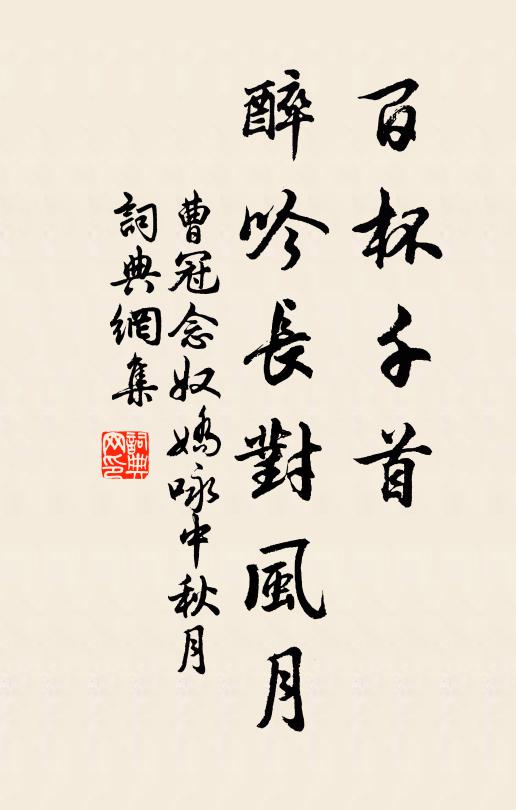 百杯千首
醉吟長對風月
曹冠念奴嬌咏中秋月
詞典網集
詞典网印